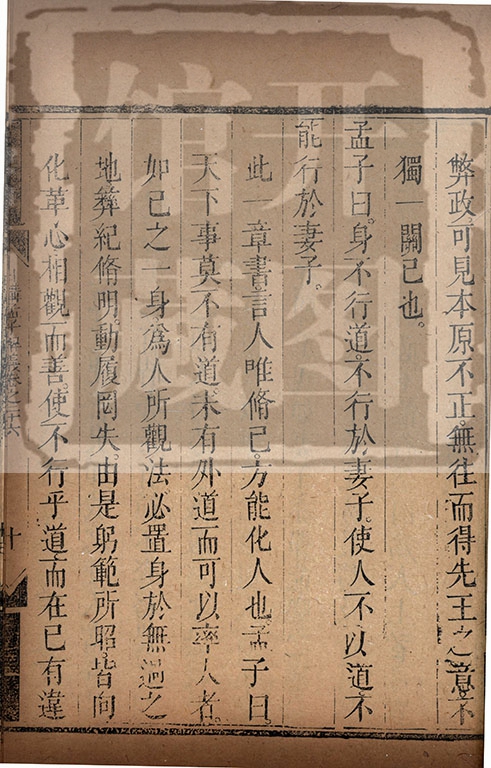 弊政可見本原不正無往而得先王之意不
獨一關已也。
孟子曰。身不行道。不行於妻子。使人不以道。不
能行於妻子。
此一章書言人唯脩己。方能化人也。孟子曰。
天下事莫不有道。未有外道而可以率人者。
如己之一身為人所觀法。必置身於無過之
地。彝紀脩明。動履罔失。由是躬範所昭。皆向
化革心。相觀而善。使不行乎道。而在己有違
卷之六
十